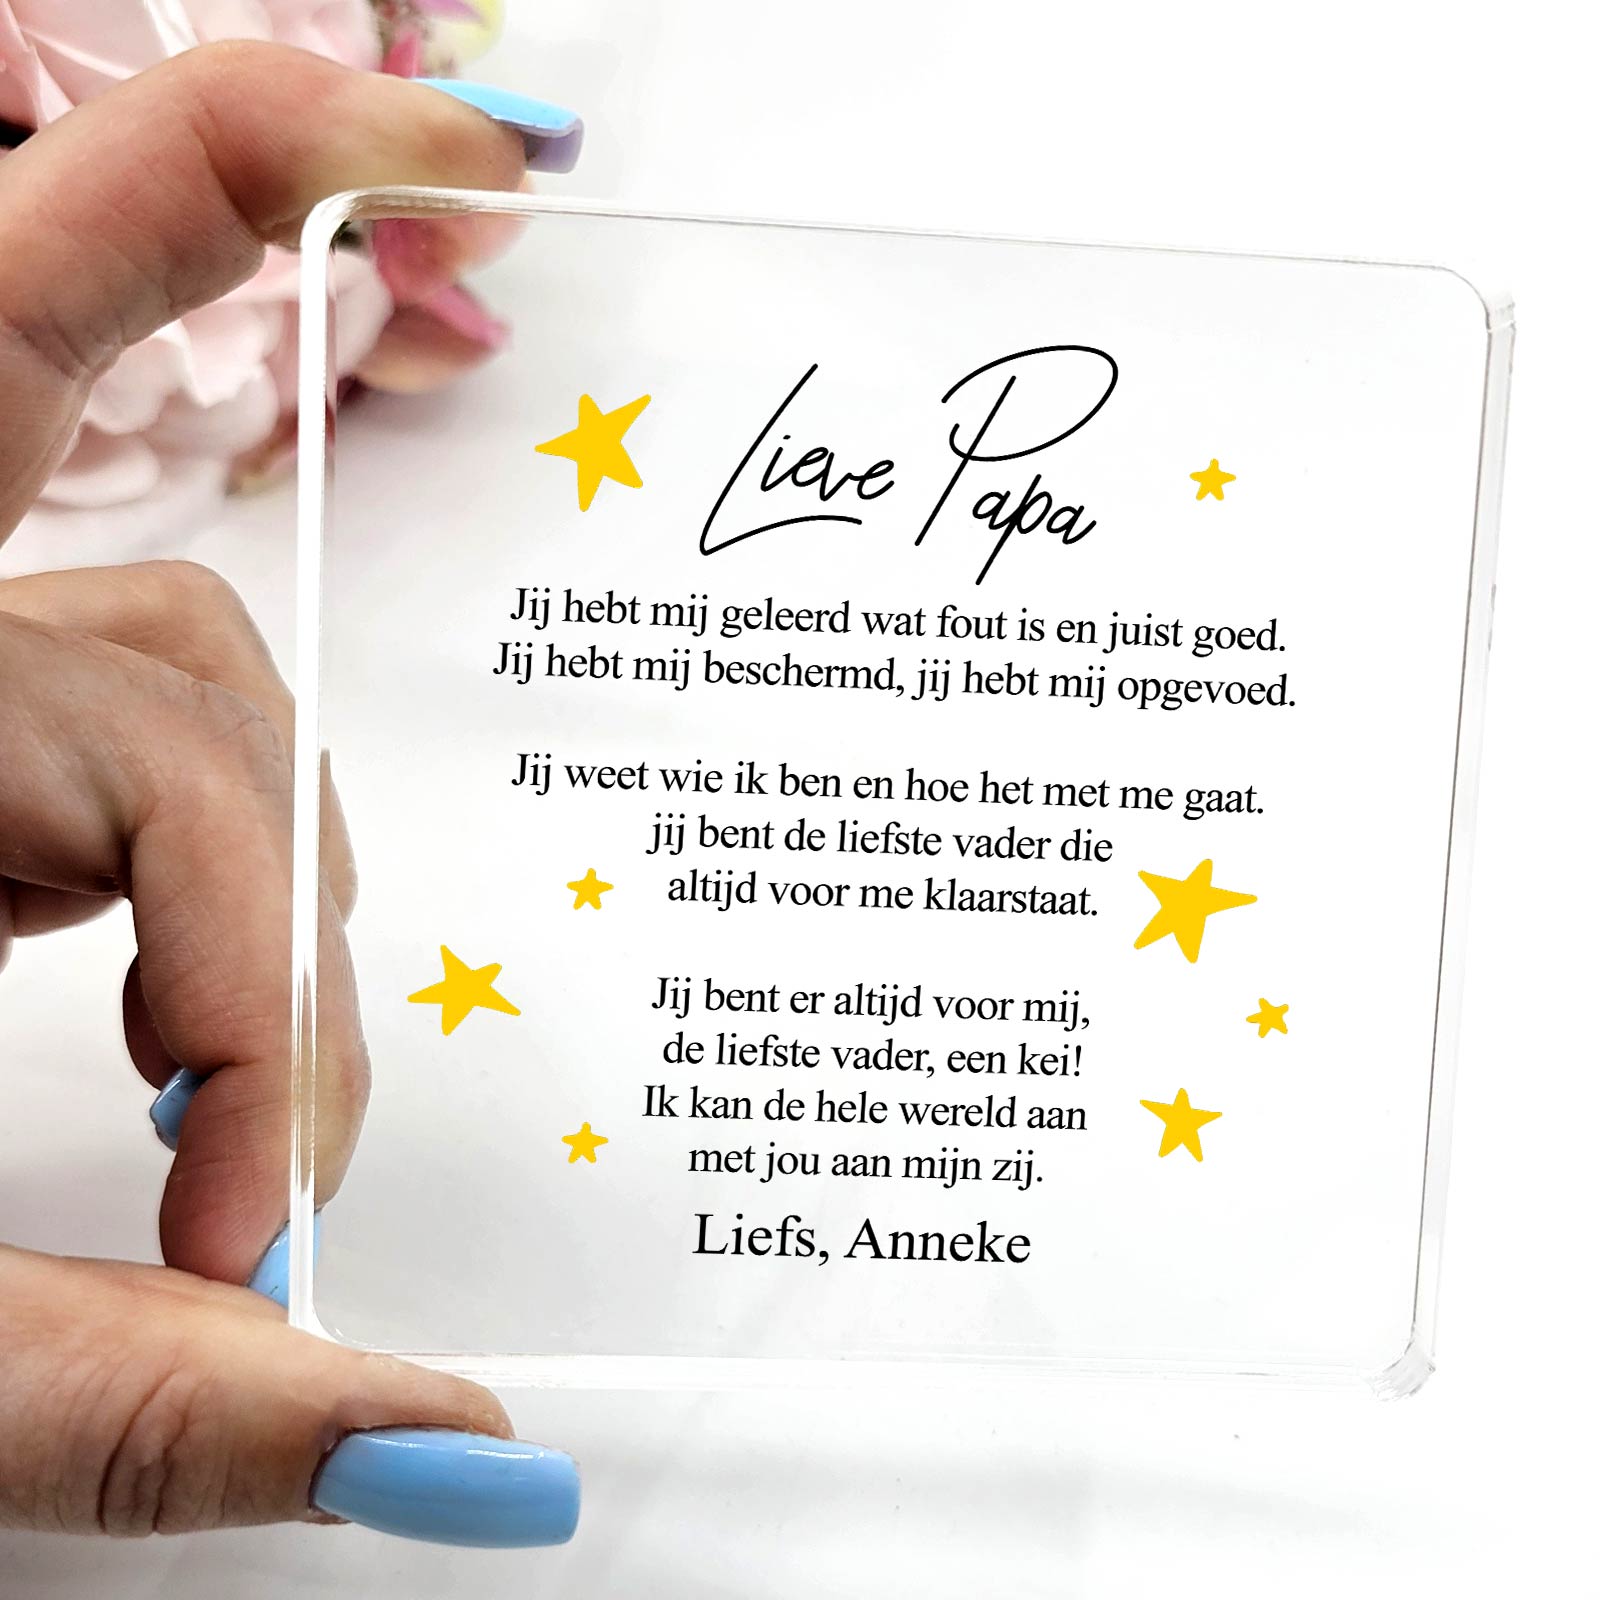 Lieve Papa
Jij hebt mij geleerd wat fout is en juist goed.
Jij hebt mij beschermd, jij hebt mij opgevoed.
Jij weet wie ik ben en hoe het met me gaat.
jij bent de liefste vader die
altijd voor me klaarstaat.
Jij bent er altijd voor mij,
de liefste vader, een kei!
Ik kan de hele wereld aan
met jou aan mijn zij.
Liefs, Anneke